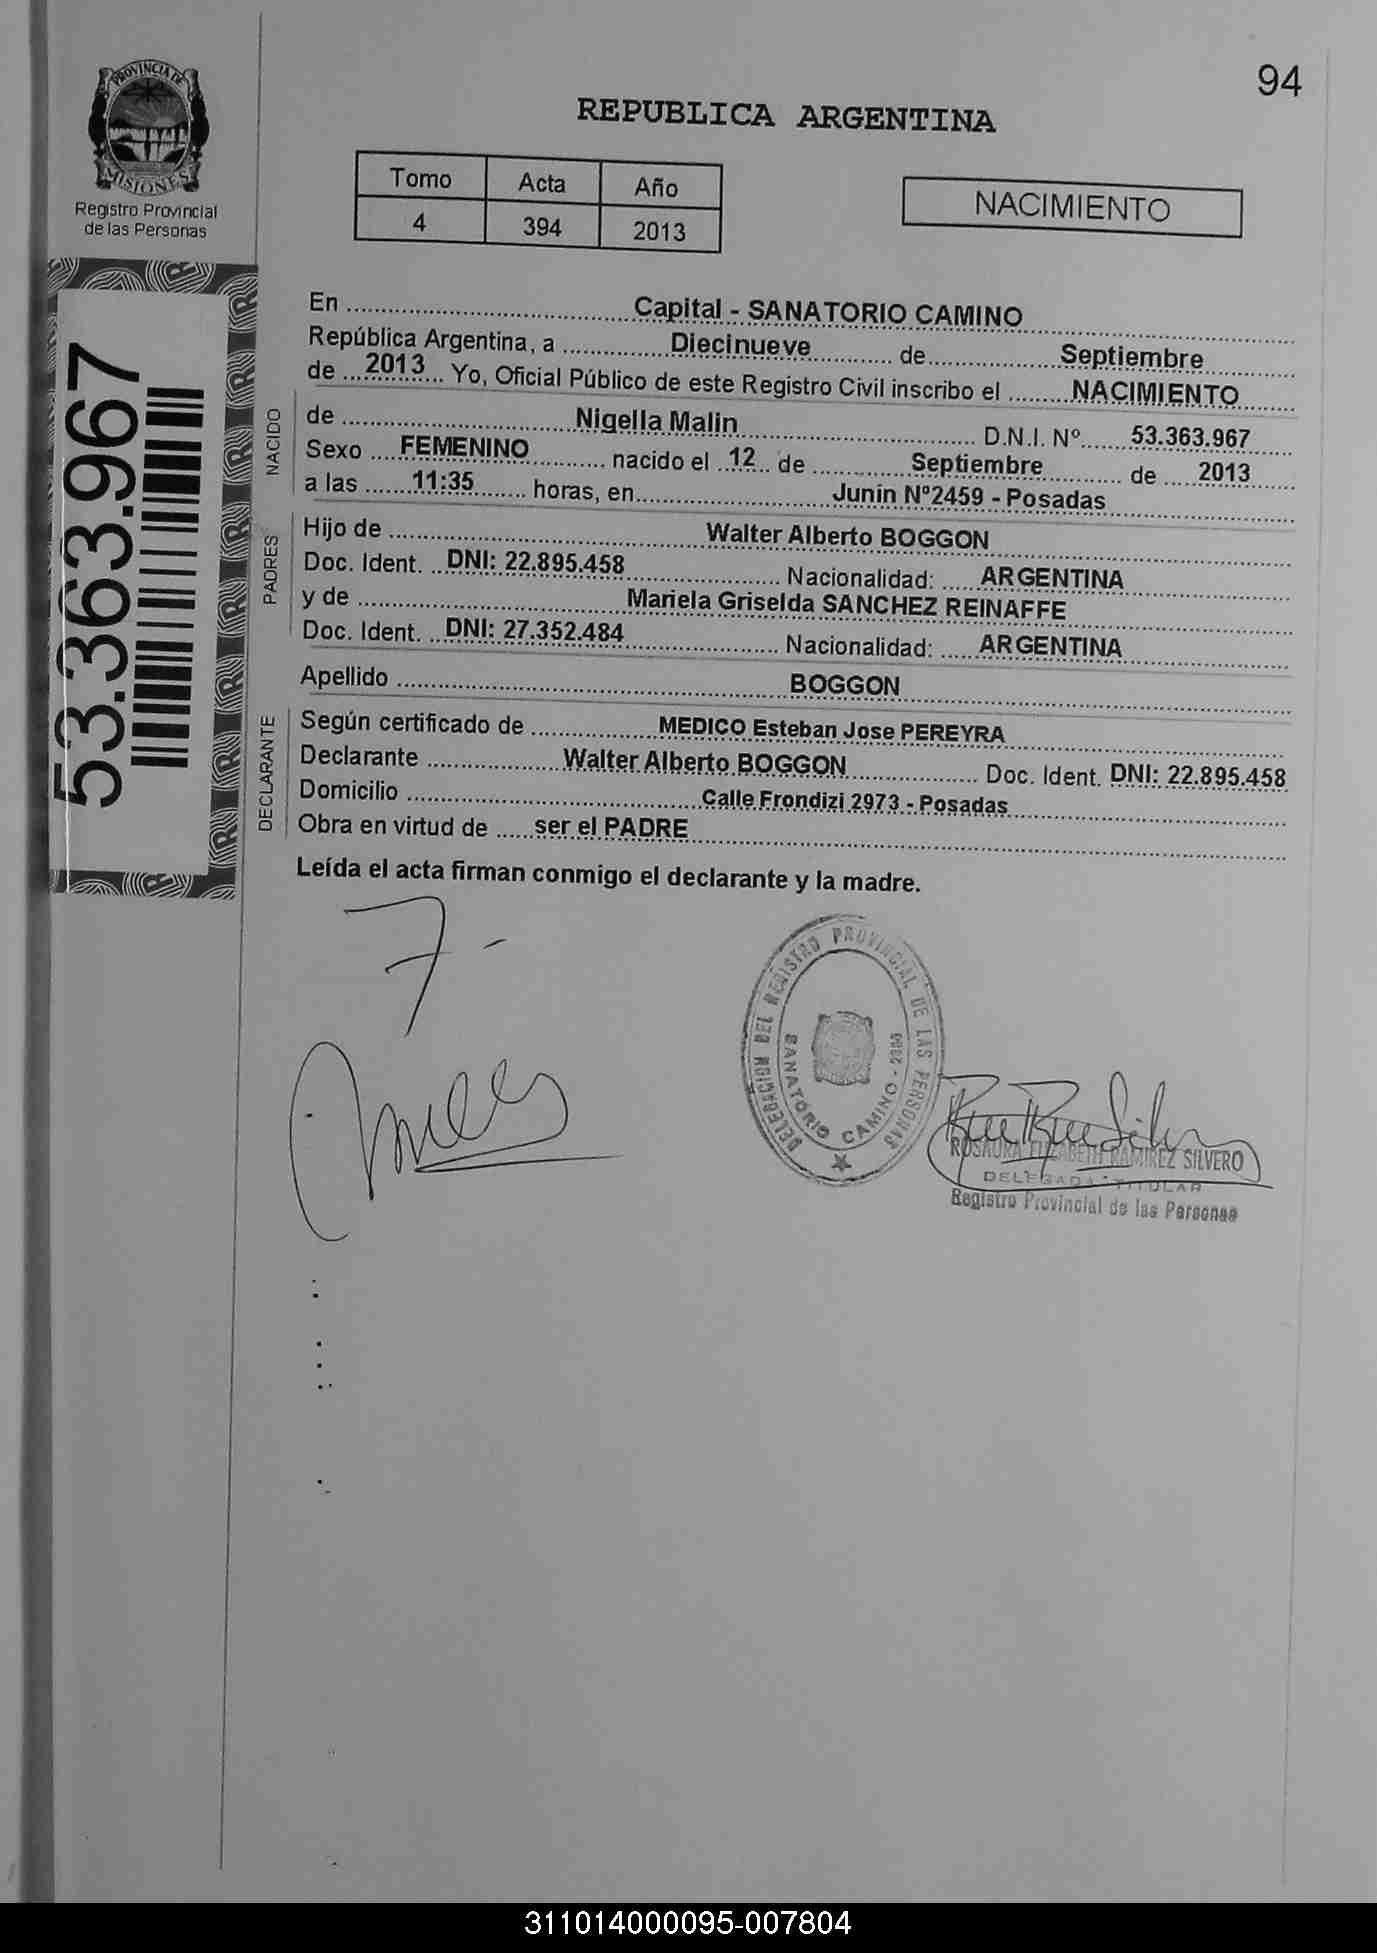 94
PROVINCIA DE
MISIONES
Registro Provincial
de las Personas
REPUBLICA ARGENTINA
Tomo Acta Año
4 394 2013
NACIMIENTO
53.363.967
En ........ Capital - SANATORIO CAMINO ........
República Argentina, a ........ Diecinueve ........ de ........ Septiembre ........
de ... 2013 ... Yo, Oficial Público de este Registro Civil inscribo el ........ NACIMIENTO ........
NACIDO
de ........ Nigella Malin ........ D.N.I. Nº ...... 53.363.967
Sexo .... FEMENINO ........ nacido el .. 12 .. de ........ Septiembre ........ de ..... 2013 ......
a las ...... 11:35 ....... horas, en ........ Junin Nº2459 - Posadas ........
PADRES
Hijo de ........ Walter Alberto BOGGON ........
Doc. Ident. .. DNI: 22.895.458 ........ Nacionalidad: ..... ARGENTINA ........
y de ........ Mariela Griselda SANCHEZ REINAFFE ........
Doc. Ident. .. DNI: 27.352.484 ........ Nacionalidad: ..... ARGENTINA ........
Apellido ........ BOGGON ........
DECLARANTE
Según certificado de ........ MEDICO Esteban Jose PEREYRA ........
Declarante ........ Walter Alberto BOGGON ........ Doc. Ident. DNI: 22.895.458
Domicilio ........ Calle Frondizi 2973 - Posadas ........
Obra en virtud de ..... ser el PADRE ........
Leída el acta firman conmigo el declarante y la madre.
DELEGACION DEL REGISTRO PROVINCIAL DE LAS PERSONAS
SANATORIO CAMINO -
ROSAURA ELIZABETH RAMIREZ SILVERO
DELEGADA TITULAR
Registro Provincial de las Personas
311014000095-007804